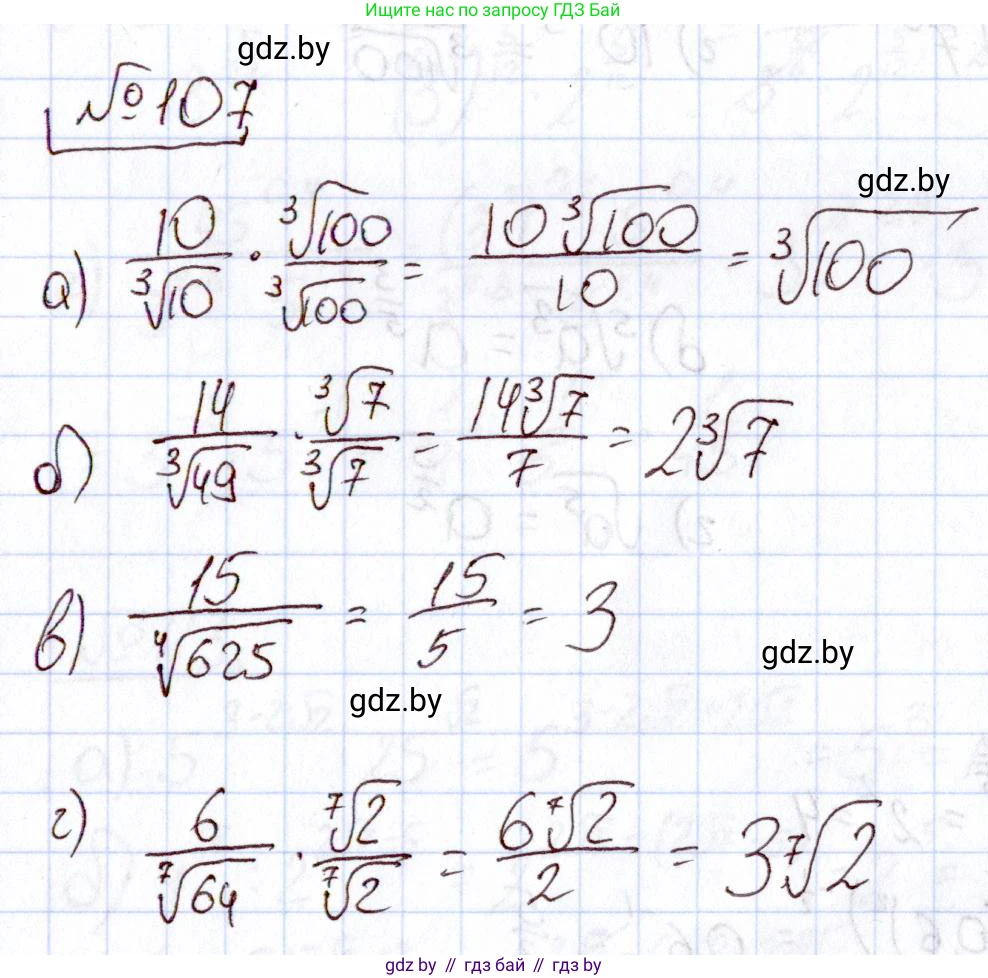 Ищите нас по запросу ГДЗ Бай
gdz.by
№107
gdz.by
а) 10/∛10 · ∛100/∛100 = 10∛100/10 = ∛100
б) 14/∛49 · ∛7/∛7 = 14∛7/7 = 2∛7
в) 15/∜625 = 15/5 = 3
gdz.by
gdz.by
г) 6/⁷√64 · ⁷√2/⁷√2 = 6⁷√2/2 = 3⁷√2
gdz by // гдз бай // гдз by